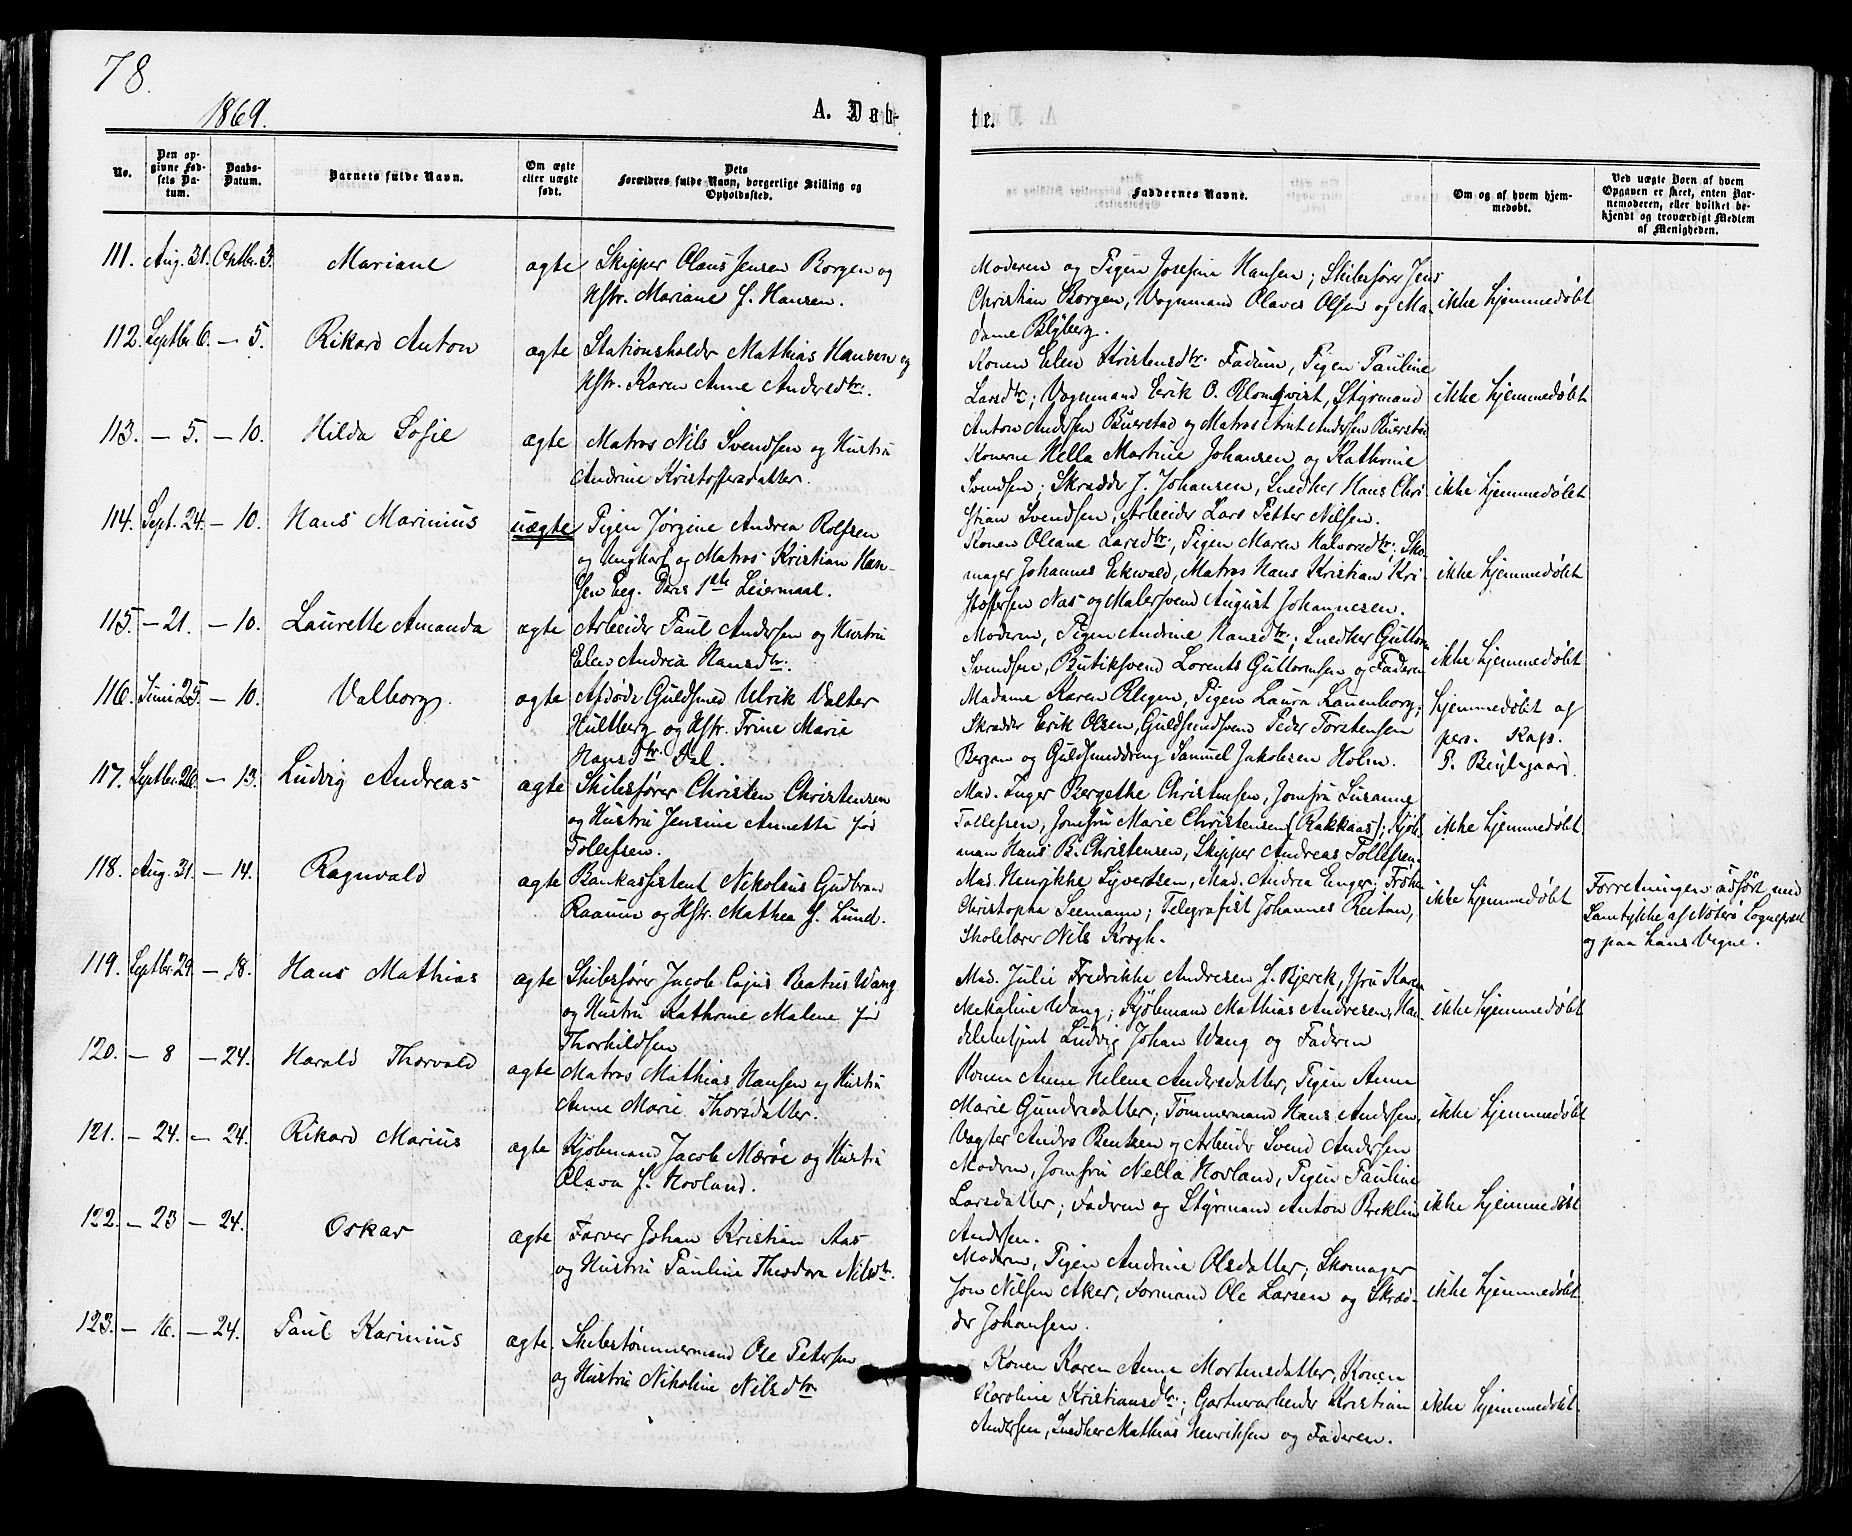 78.
1869.
A. Døb-
te.
No.
Den op-
givne Fød-
sels Da-
tum.
Daabs-
Datum.
Barnets fulde Navn.
Om ægte
eller uægte
født.
Dets
Forældres fulde Navn, borgerlige Stilling og
Opholdssted.
Faddernes Navne.
Om og af hvem hjem-
medøbt.
Ved uægte Børn af hvem
Opgaven er skeet, enten Bar-
nemoderen, eller hvilket be-
kjendt og troværdigt Medlem
af Menigheden.
111. Aug. 31. Oktbr. 3. Mariane ægte Skipper Olaus Jensen Borgen og
Hstr. Mariane f. Hansen.
Moderen og Pigen Josefine Hansen; Skibsfører Jens
Christian Borgen, Vognmand Olaves Olsen og Ma-
dame Blyberg.
ikke hjemmedøbt
112. Septbr. 6. — 5. Rikard Anton ægte Stationsholder Mathias Hansen og
Hstr. Karen Anne Andersdtr.
Konen Elen Kristensdtr. Fadum, Pigen Pauline
Larsdtr; Vognmand Erik O. Blomqvist, Styrmand
Anton Andersen Buerstad og Matros Arnt Andersen Buerstad
ikke hjemmedøbt
113. — 5. — 10. Hilda Sofie ægte Matros Nils Svendsen og Hustru
Andrine Kristoffersdatter.
Konerne Hella Martine Johansen og Kathrine
Svendsen; Skrædder J. Johansen, Snedker Hans Chri-
stian Svendsen, Arbeider Lars Petter Nilsen.
ikke hjemmedøbt
114. Sept. 24. — 10. Hans Marinius uægte Pigen Jörgine Andrea Rolfsen
og Ungkarl og Matros Kristian Han-
sen Eeg. Deres 1ste Leiermaal.
Konen Oleane Larsdtr., Pigen Maren Halvorsdtr; Sko-
mager Johannes Ekwald, Matros Hans Kristian Kri-
stoffersen Næs og Malersvend August Johannesen.
ikke hjemmedøbt
115. — 21. — 10. Laurette Amanda ægte Arbeider Paul Andersen og Hustru
Elen Andrea Hansdtr.
Moderen, Pigen Andrine Hansdtr; Snedker Guttorm
Svendsen, Butiksvend Lorents Guttormsen og Faderen
ikke hjemmedøbt
116. Juni 25. — 10. Valborg. ægte Afdøde Guldsmed Ulrik Valter
Hultberg og Hstr. Trine Marie
Hansdtr. Dal.
Madame Karen Blegen, Pigen Laura Lauenborg;
Skrædder Erik Olsen, Guldsmedsvend Peder Torstensen
Bergan og Guldsmeddreng Samuel Jakobsen Holm.
hjemmedøbt af
pers. Kap.
P. Blytgaard.
117. Septbr. 26. — 13. Ludvig Andreas ægte Skibsfører Christen Christensen
og Hustru Jensine Annette fød
Tollefsen.
Mad. Inger Bergethe Christensen, Jomfru Susanne
Tollefsen, Jomfru Marie Christensen (Rakkaas); Kjøb-
man Hans B. Christensen, Skipper Andreas Tollefsen.
ikke hjemmedøbt.
118. Aug. 31. — 14. Ragnvald ægte Bankassistent Nikolaus Gudbran
Raaum og Hstr. Mathea f. Lund.
Mad. Henrikke Syvertsen, Mad. Andrea Enger; Frøken
Christopha Seemann; Telegrafist Johannes Reitan,
Skolelærer Nils Krogh.
ikke hjemmedøbt
Forretningen udført med
Samtykke af Nøterø Sognepræst
og paa hans Vegne.
119. Septbr. 29. — 18. Hans Mathias ægte Skibsfører Jacob Cajus Beatus Wang
og Hustru Kathrine Malene fød
Thorkildsen
Mad. Julie Fredrikke Andresen f. Bjerck, Jfru Karen
Nekaline Wang; Kjöbmand Mathias Andresen, Han-
delsbetjent Ludvig Johan Wang og Faderen
ikke hjemmedøbt
120. — 8 — 24. Harald Thorvald ægte Matros Mathias Hansen og Hustru
Anne Marie Thorsdatter.
Konen Anne Helene Andersdatter, Pigen Anne
Marie Gundersdatter; Tømmermand Hans Andersen,
Vægter Anders Bentsen og Arbeider Svend Andersen
ikke hjemmedøbt
121. — 24. — 24. Rikard Marius ægte Kjöbmand Jacob Mærøe og Hustru
Olava f. Hovland.
Moderen, Jomfru Nella Hovland, Pigen Pauline
Larsdatter; Faderen og Styrmand Anton Brekline
Andersen.
ikke hjemmedøbt
122. — 23 — 24. Oskar ægte Farver Johan Kristian Aas
og Hustru Pauline Theodora Nilsdtr.
Moderen, Pigen Andrine Olsdatter; Skomager
Jon Nilsen Aker, Formand Ole Larsen og Skræd-
der Johansen.
ikke hjemmedøbt.
123. — 16. — 24. Paul Karinius ægte. Skibstømmermand Ole Petersen
og Hustru Nikoline Nilsdtr
Konen Karen Anne Mortensdatter, Konen
Karoline Kristiansdtr; Gartnerarbeider Kristian
Andersen, Snedker Mathias Henriksen og Faderen.
ikke hjemmedøbt.